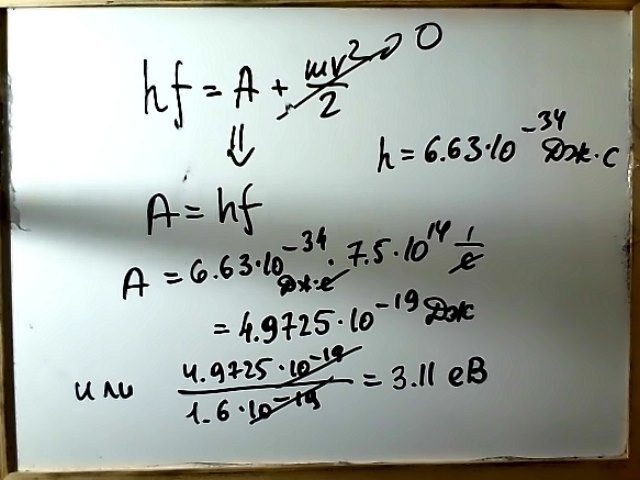 hf = A + mv²/2 → 0
⇓
h = 6.63·10⁻³⁴ Дж·с
A = hf
A = 6.63·10⁻³⁴ Дж·с · 7.5·10¹⁴ 1/с
= 4.9725·10⁻¹⁹ Дж
или 4.9725·10⁻¹⁹ / 1.6·10⁻¹⁹ = 3.11 еВ